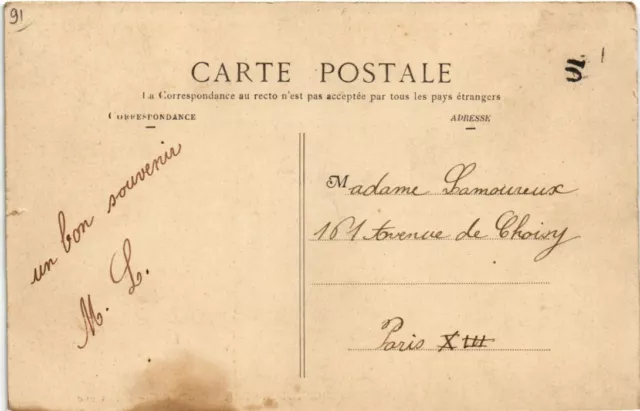 91
CARTE POSTALE
La Correspondance au recto n'est pas acceptée par tous les pays étrangers
CORRESPONDANCE
ADRESSE
un bon souvenir
M. L.
Madame Lamoureux
161 Avenue de Choisy
Paris XIII